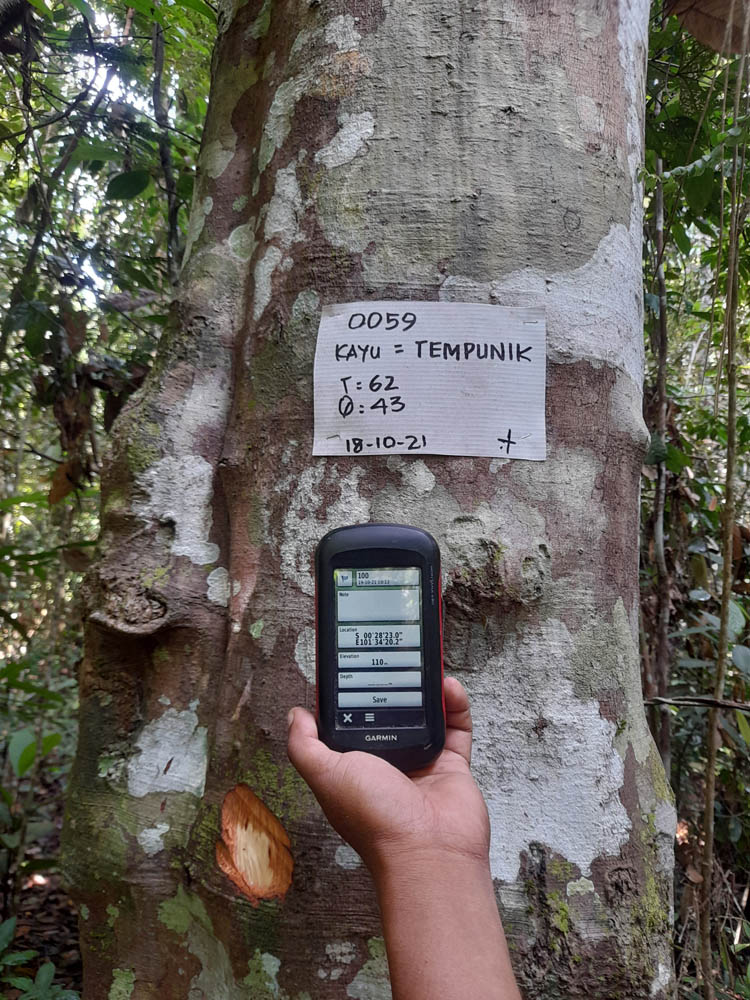 0059
KAYU = TEMPUNIK
T: 62
Ø: 43
18-10-21 +
100
Note
Location
S 00°28'23.0"
E101°34'20.2"
Elevation
110m
Depth
Save
GARMIN